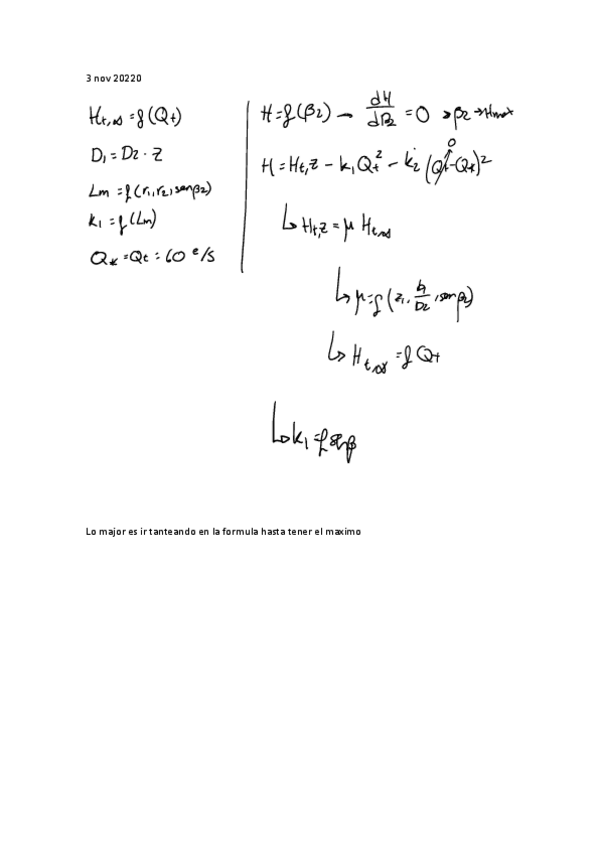 3 nov 20220
Ht,∞ = f(Qt)
D1 = D2 · z
Lm = f(r1, r2, senβ2)
k1 = f(Lm)
Q* = Qt = 60 e/s
H = f(β2) → dH/dβ2 = 0 → β2 → Hmax
H = Ht,z − k1 Qt² − k2 (Qt − Q*)² 0
↳ Ht,z = μ Ht∞
↳ μ = f(z, D1/D2, senβ2)
↳ Ht∞ = f Qt
↳ k1 = f senβ
Lo major es ir tanteando en la formula hasta tener el maximo